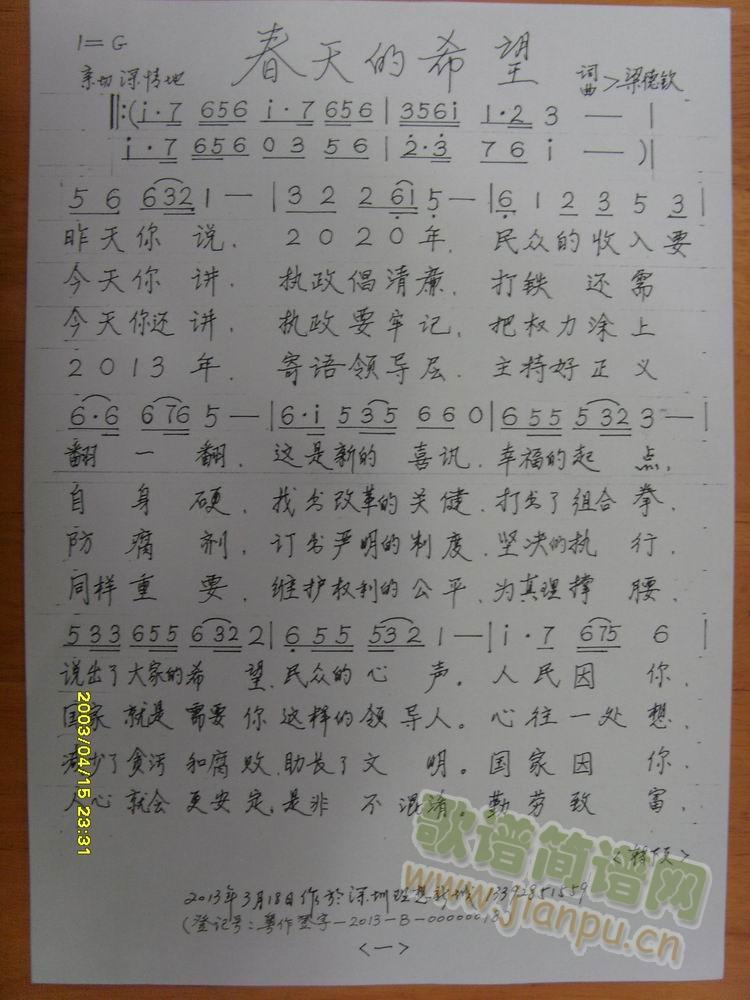 1=G
春天的希望
亲切深情地
词
曲>梁德钦
‖:(i·7 656 i·7 656 | 3561 1·2 3 — |
i·7 656 0 3 5 6 | 2·3 7 6 i — )|
5 6 632 1 — | 3 2 2 61 5 — | 6 1 2 3 5 3 |
昨天你说,2020年,民众的收入要
今天你讲,执政倡清廉,打铁还需
今天你还讲,执政要牢记,把权力涂上
2013年,寄语领导层,主持好正义
6·6 676 5 — | 6·i 535 660 | 655 5532 3 — |
翻一翻,这是新的喜讯,幸福的起点,
自身硬,找出改革的关健,打出了组合拳,
防腐剂,订出严明的制度,坚决的执行,
同样重要,维护权利的公平,为真理撑腰,
533 655 6322 | 6 5 5 532 1 — | i·7 675 6 |
说出了大家的希望,民众的心声。人民因你,
国家就是需要你这样的领导人。心往一处想,
减少了贪污和腐败,助长了文明。国家因你,
人心就会更安定,是非不混淆。勤劳致富,
<转下页>
2013年3月18日作於深圳 13392851559
(登记号:粤作登字-2013-B-00000018)
<一>
2003/04/15 23:31
歌谱简谱网
www.jianpu.cn